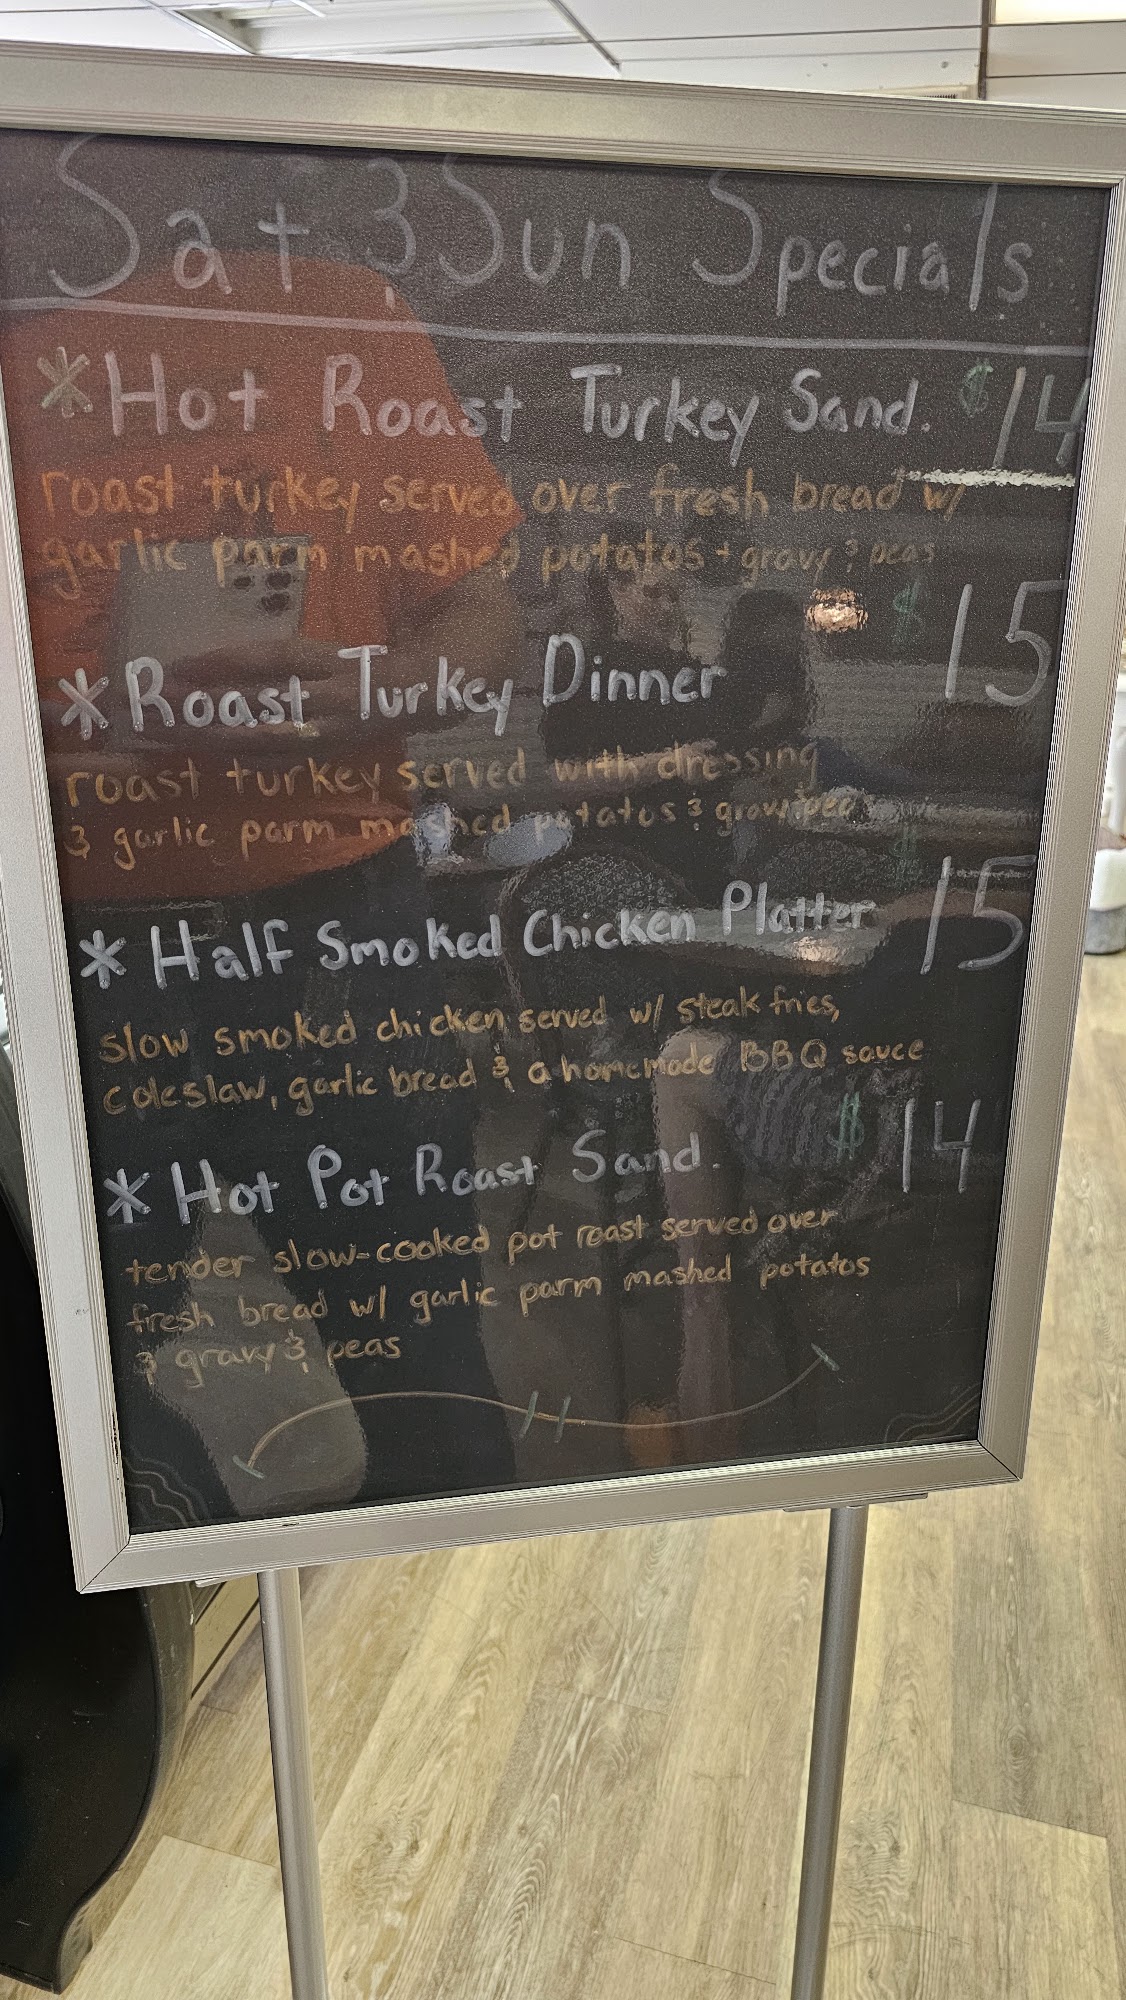 Sat & Sun Specials
*Hot Roast Turkey Sand. $14
roast turkey served over fresh bread w/
garlic parm mashed potatos + gravy & peas
$15
*Roast Turkey Dinner
roast turkey served with dressing
& garlic parm mashed potatos & gravy
$15
*Half Smoked Chicken Platter
slow smoked chicken served w/ steak fries,
coleslaw, garlic bread & a homemade BBQ sauce
$14
*Hot Pot Roast Sand.
tender slow-cooked pot roast served over
fresh bread w/ garlic parm mashed potatos
& gravy & peas